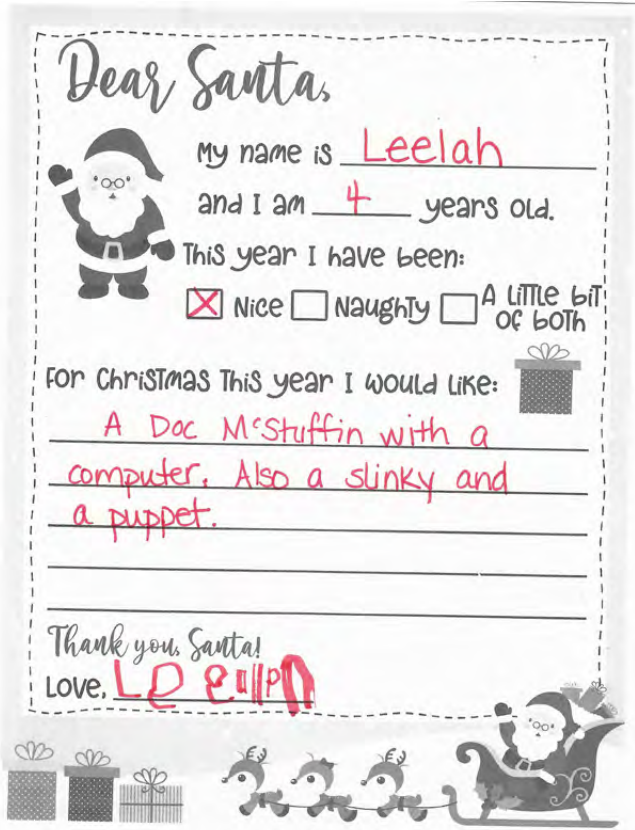 Dear Santa,
My name is Leelah
and I am 4 years old.
This year I have been:
X Nice Naughty A little bit of both
For Christmas this year I would like:
A Doc McStuffin with a
computer. Also a slinky and
a puppet.
Thank you, Santa!
Love,